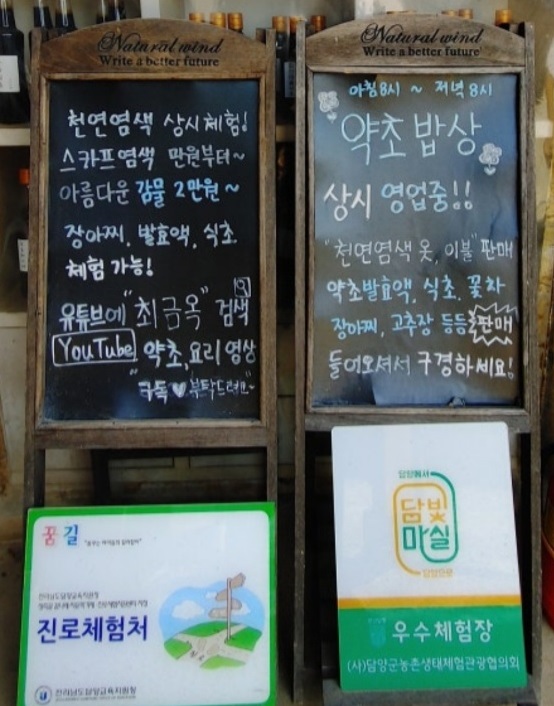 Natural wind
Write a better future
천연염색 상시체험!
스카프염색 만원부터~
아름다운 감물 2만원~
장아찌, 발효액, 식초
체험 가능!
유튜브에 "최금옥" 검색
YouTube 약초, 요리 영상
"구독♥부탁드려요~
Natural wind
Write a better future
아침8시 ~ 저녁 8시
약초밥상
상시 영업중!!
"천연염색 옷, 이불" 판매
약초발효액, 식초, 꽃차
장아찌, 고추장 등등 판매
들어오셔서 구경하세요!
꿈길
전라남도담양교육지원청
진로체험처
전라남도담양교육지원청
담양에서
담빛
마실
담양으로
우수체험장
(사)담양군농촌생태체험관광협의회